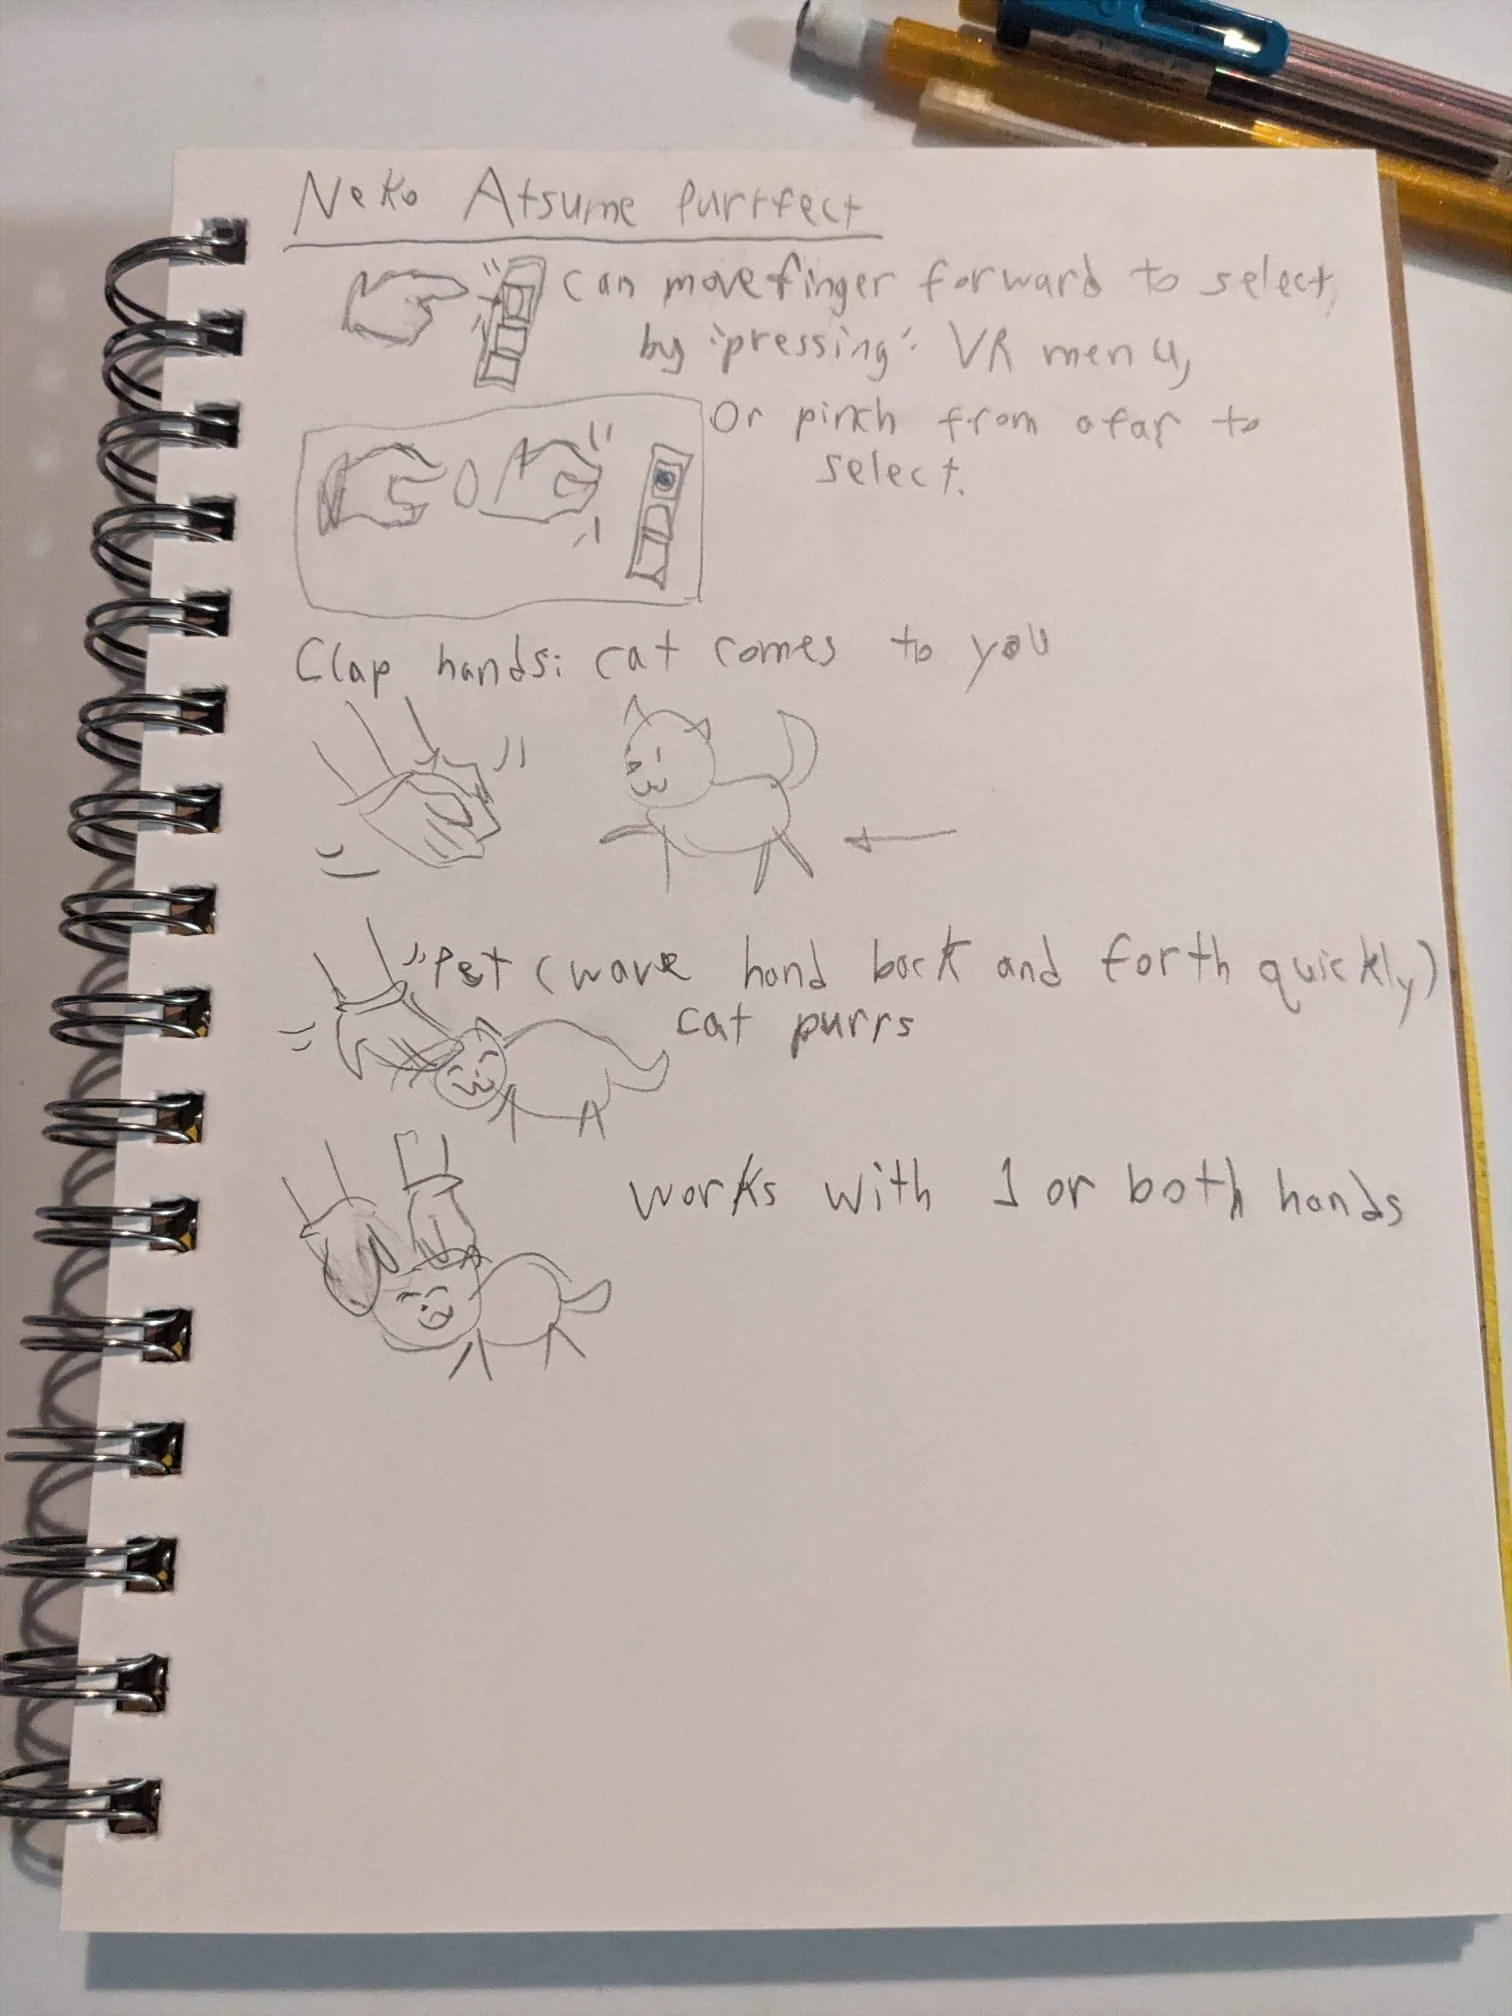 Neko Atsume Purrfect
can move finger forward to select,
by "pressing" VR menu,
Or pinch from afar to
select.
Clap hands: cat comes to you
Pet (wave hand back and forth quickly)
cat purrs
works with 1 or both hands